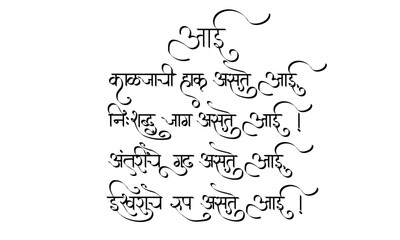 आई
काळजाची हाक असते आई
निःशब्द जाग असते आई !
अंतरीचे गूढ असते आई
ईश्वराचे रूप असते आई !